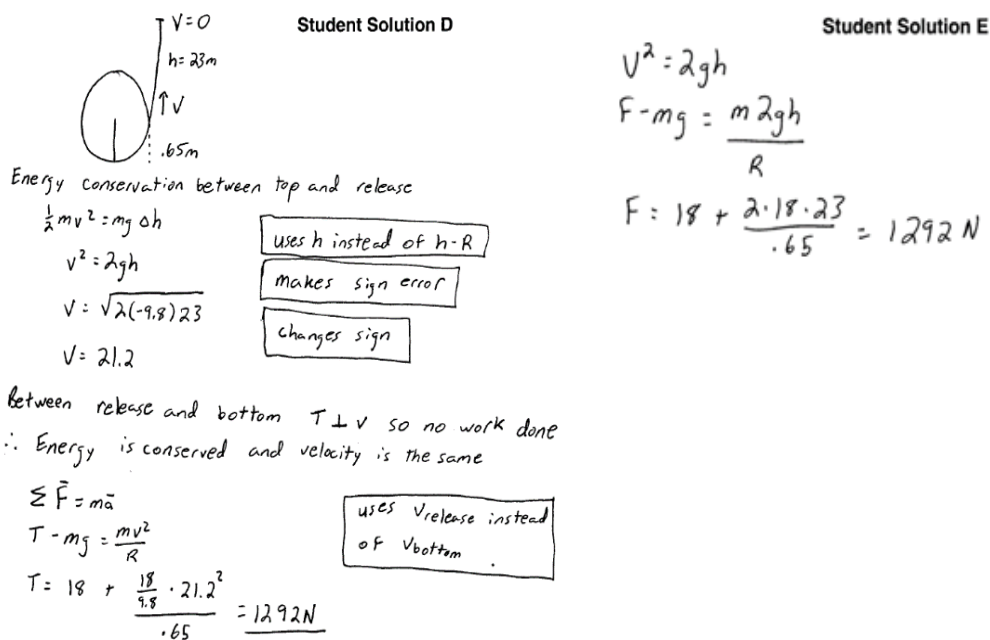 Student Solution D
V=0
h= 23m
↑V
.65m
Energy conservation between top and release
½mv² = mg Δh
v² = 2gh
V = √2(-9.8)23
V= 21.2
uses h instead of h-R
makes sign error
changes sign
Between release and bottom T ⊥ v so no work done
∴ Energy is conserved and velocity is the same
Σ F̄ = mā
T - mg = mv²/R
T= 18 + 18/9.8 · 21.2² / .65 = 1292N
uses Vrelease instead
of Vbottom .
Student Solution E
V² = 2gh
F - mg = m2gh/R
F = 18 + 2·18·23/.65 = 1292 N